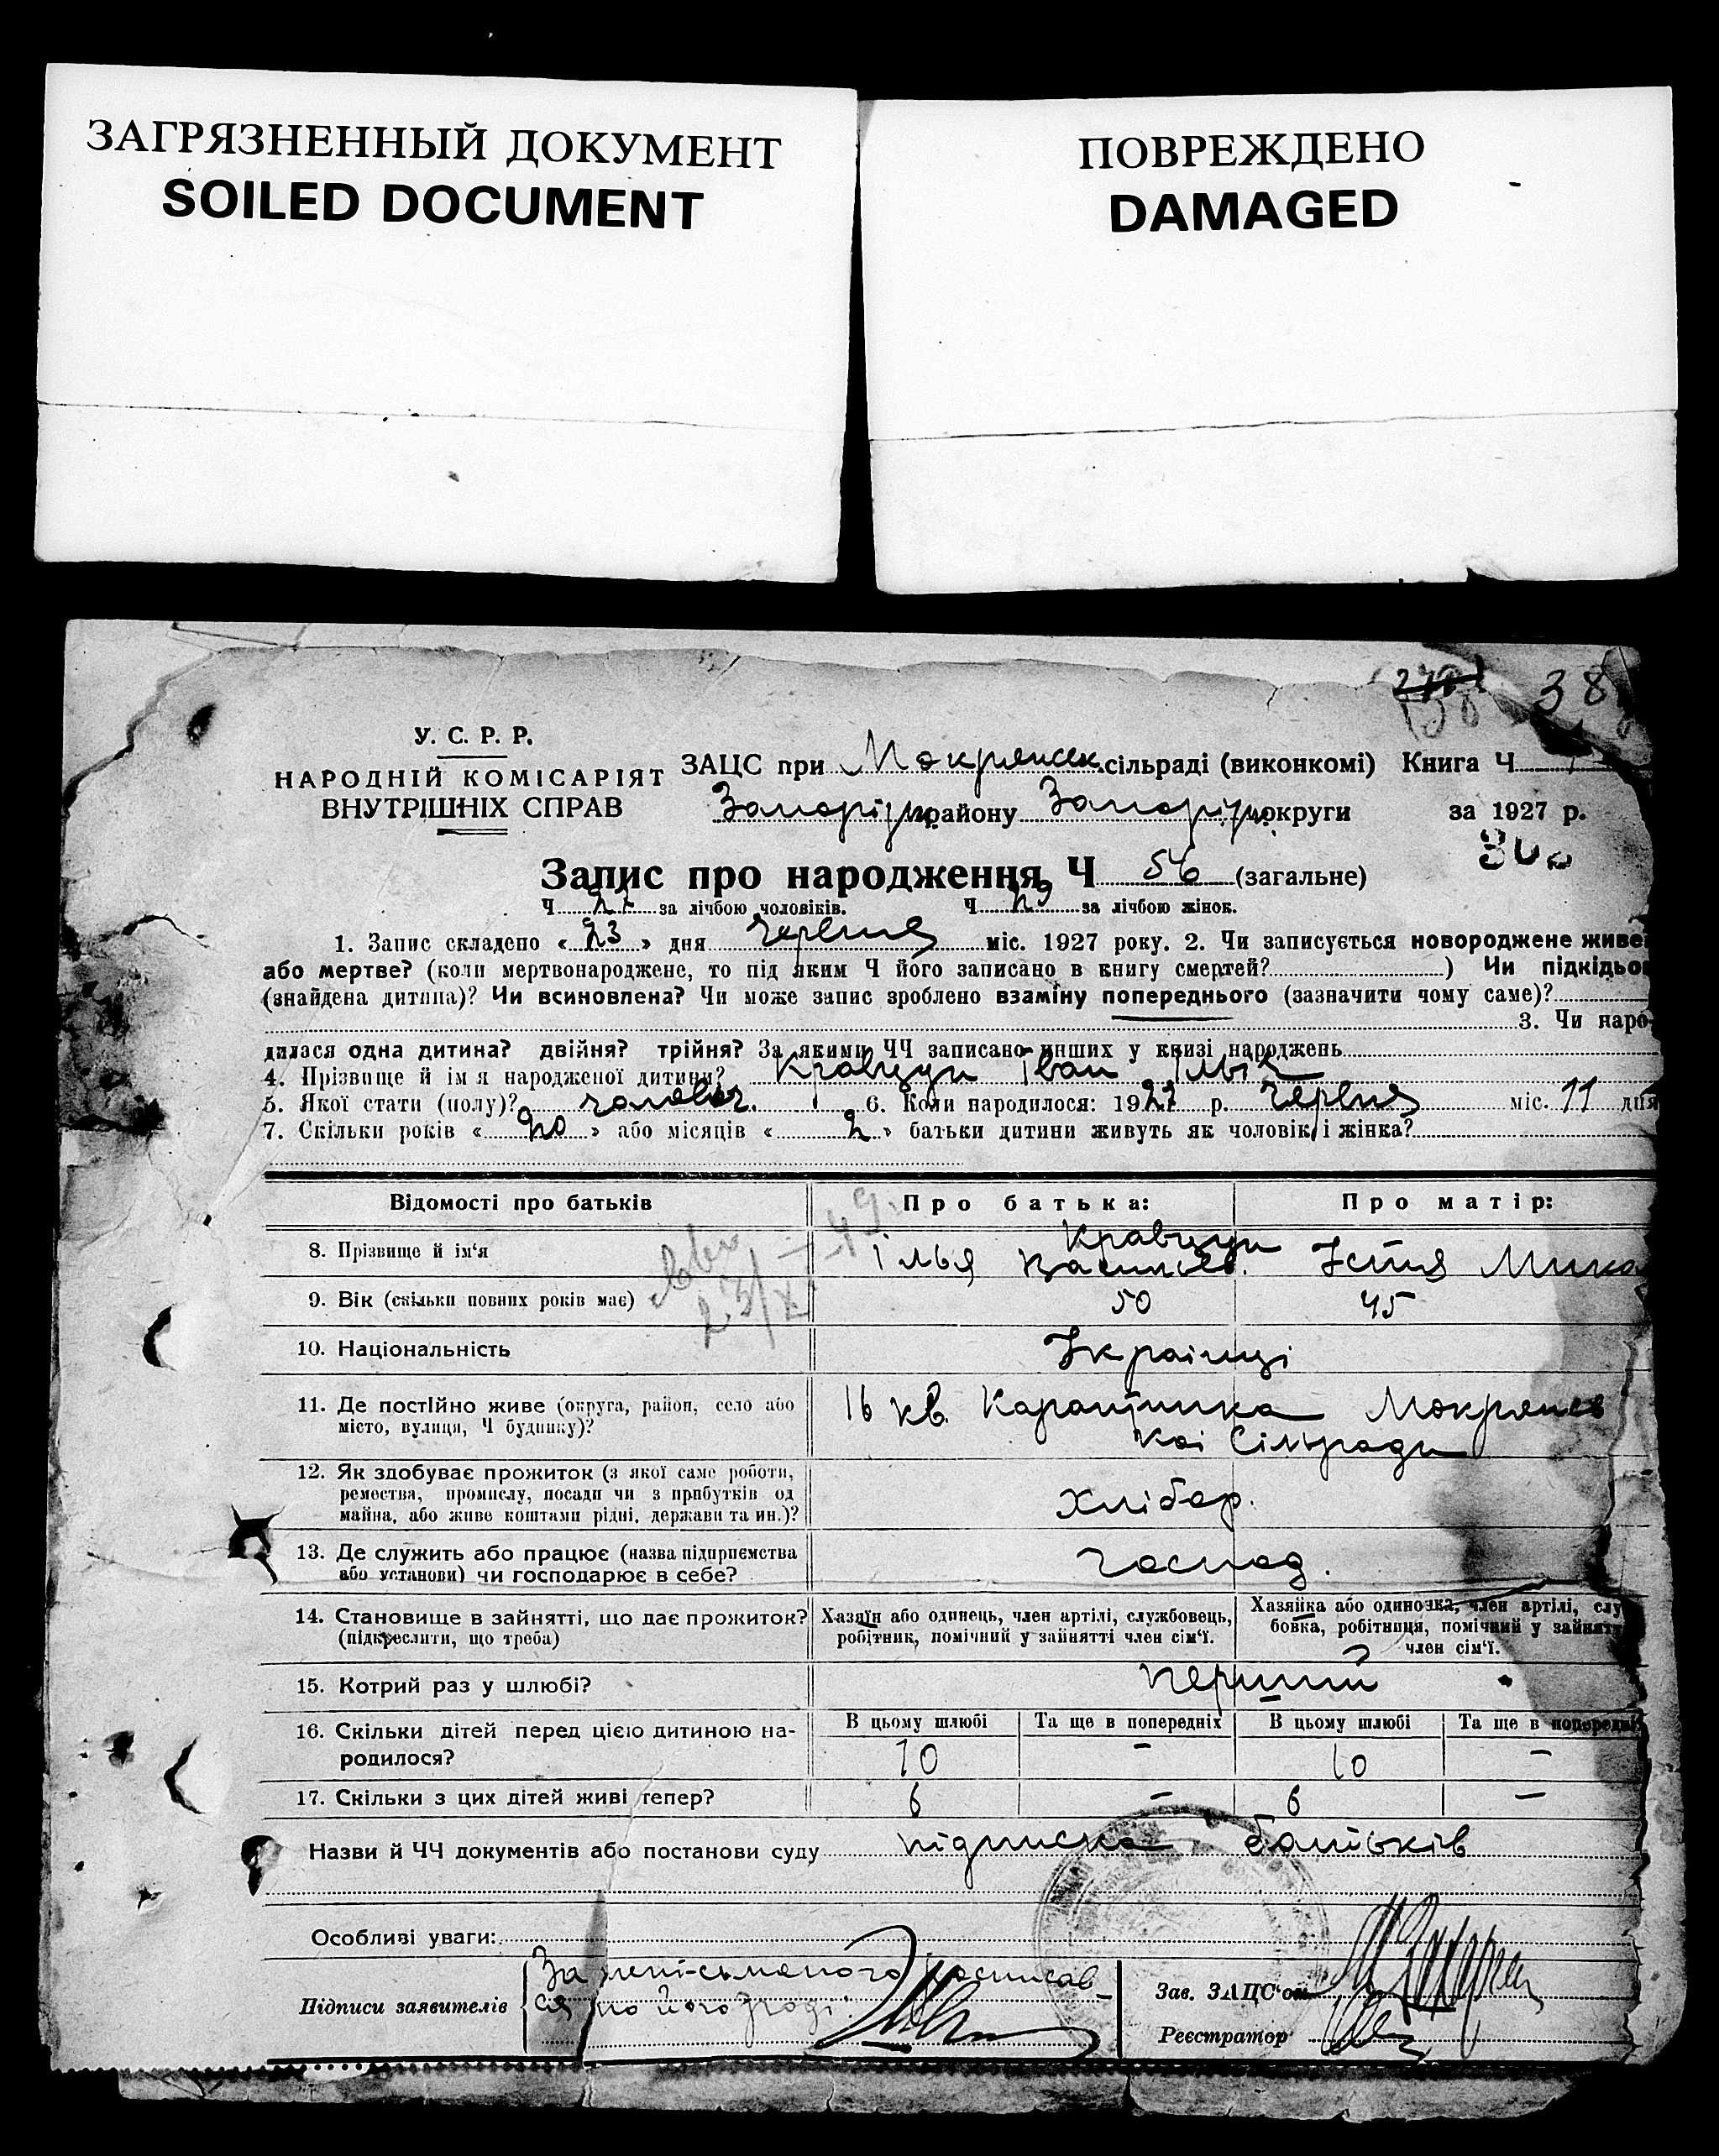 ЗАГРЯЗНЕННЫЙ ДОКУМЕНТ
SOILED DOCUMENT
ПОВРЕЖДЕНО
DAMAGED
38
У. С. Р. Р.
НАРОДНІЙ КОМІСАРІЯТ
ВНУТРІШНІХ СПРАВ
ЗАЦС при Мокрянск. сільраді (виконкомі) Книга Ч
Запоріз району Запоріз округи за 1927 р.
Запис про народження Ч 56 (загальне)
Ч 27 за лічбою чоловіків. Ч 29 за лічбою жінок.
1. Запис складено « 23 » дня червня міс. 1927 року. 2. Чи записується новороджене живе
або мертве? (коли мертвонароджене, то під яким Ч його записано в книгу смертей? ) Чи підкідьо
(знайдена дитина)? Чи всиновлена? Чи може запис зроблено взаміну попереднього (зазначити чому саме)?
3. Чи наро-
дилася одна дитина? двійня? трійня? За якими ЧЧ записано инших у книзі народжень
4. Прізвище й ім'я народженої дитини? Кравцун Іван Ільіч
5. Якої стати (полу)? чоловіч. 6. Коли народилося: 1927 р. Червня міс. 11 дня
7. Скільки років « 20 » або місяців « 2 » батьки дитини живуть як чоловік і жінка?
Відомості про батьків Про батька: Про матір:
8. Прізвище й ім'я Кравцун
Ілья Васильев. Устя Мика
9. Вік (скільки повних років має) 50 45
10. Національність Українці
11. Де постійно живе (округа, район, село або
місто, вулиця, Ч будинку)?
16 кв. Карантинка Мокрянсь
кої Сільради
12. Як здобуває прожиток (з якої саме роботи,
ремества, промислу, посади чи з прибутків од
майна, або живе коштами рідні, держави та ин.)?
хлібор.
13. Де служить або працює (назва підприємства
або установи) чи господарює в себе?
господ.
14. Становище в зайнятті, що дає прожиток?
(підкреслити, що треба)
Хазяїн або одинець, член артілі, службовець,
робітник, помічний у зайнятті член сім'ї.
Хазяйка або одиночка, член артілі, слу
бовка, робітниця, помічний у зайнятт
член сім'ї.
15. Котрий раз у шлюбі? перший
16. Скільки дітей перед цією дитиною на-
родилося?
В цьому шлюбі Та ще в попередніх В цьому шлюбі Та ще в попередні
10 - 10 -
17. Скільки з цих дітей живі тепер? 6 - 6 -
Назви й ЧЧ документів або постанови суду підписка батьків
Особливі уваги:
За неписьменого росписав
ся по його згоді
Підписи заявителів
Зав. ЗАЦС'ом
Реєстратор